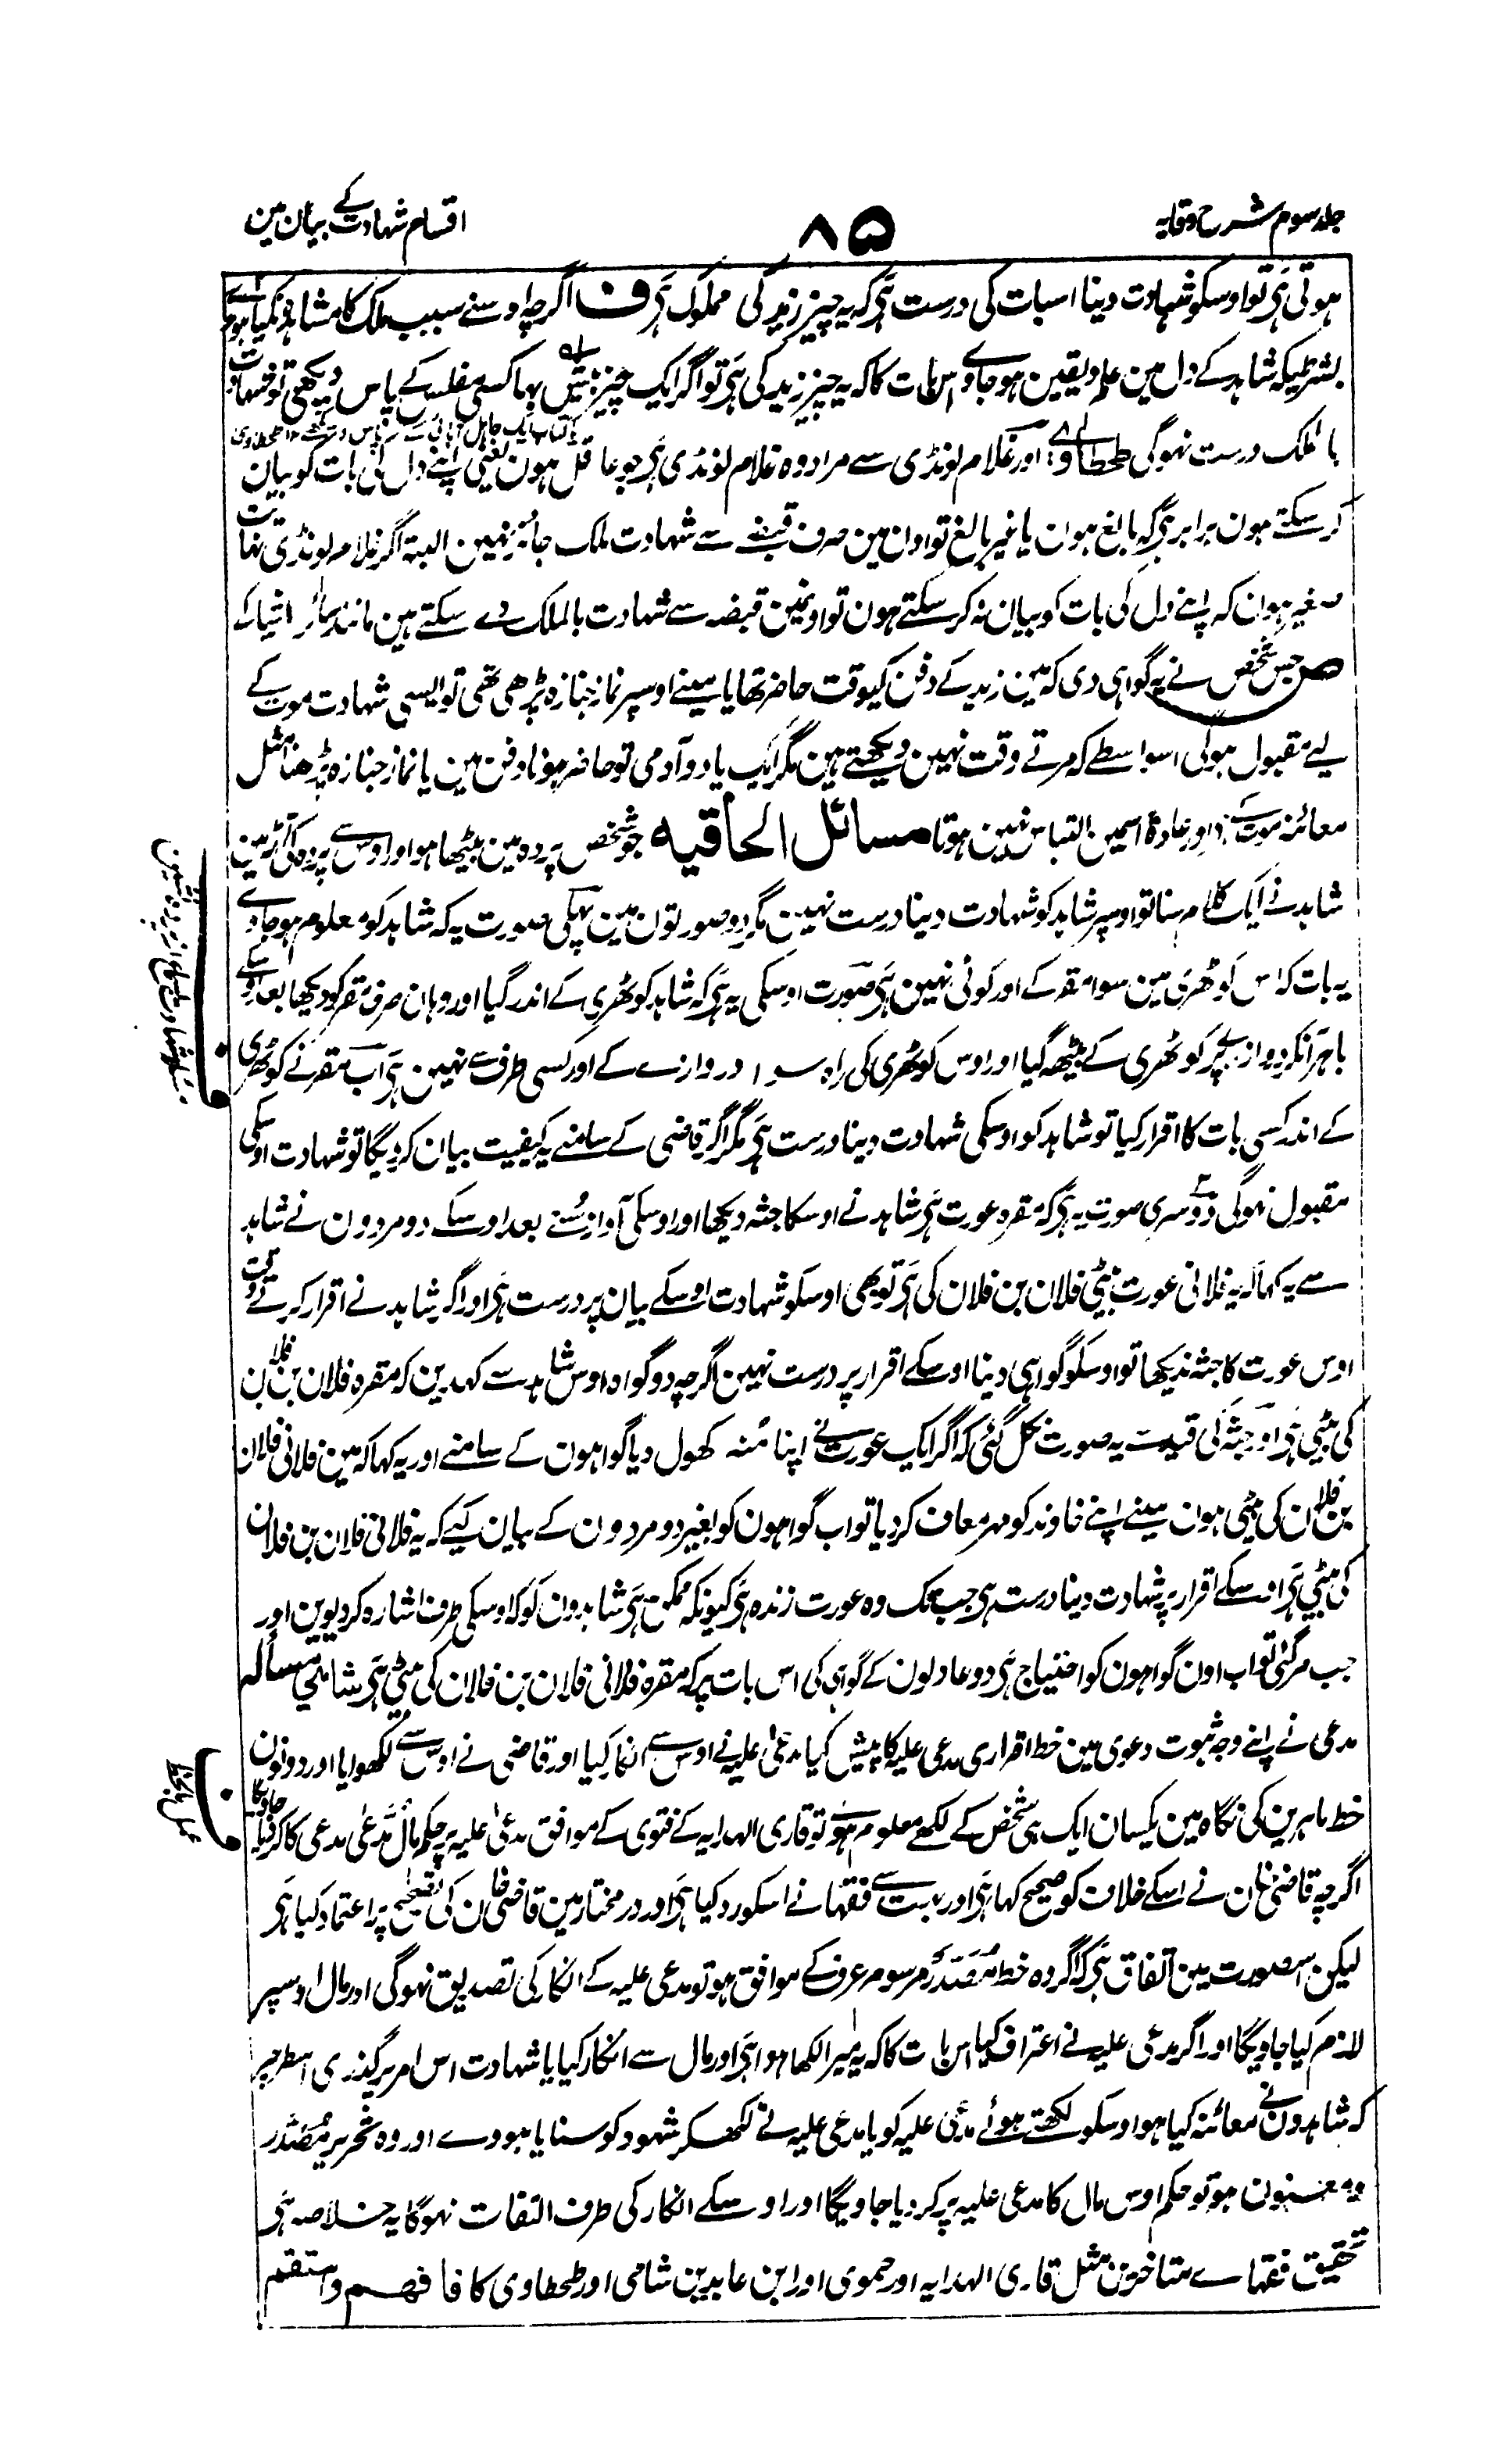 جلد سوم شرح وقایہ
۸۵
اقسام شہادت کے بیان مین
ہوتی ہی تو اوسکو شہادت دینا اسبات کی درست ہی کہ یہ چیز زید کی مملوک ہی ف اگرچہ اوسنے سبب ملک کا مشاہدہ نکیا ہو
بشرطیکہ شاہد کے دل مین علم و یقین ہو جاوے اس بات کا کہ یہ چیز زید کی ہی تو اگر ایک چیز بیش بہا کسی مفلس کے پاس دیکھی تو شہادت
بالملک درست نہوگی طحطاوے اور غلام لونڈی سے مراد وہ غلام لونڈی ہی جو عاقل ہون یعنی اپنے دل کی بات کو بیان
کر سکتے ہون برابر ہی کہ بالغ ہون یا غیر بالغ تو اون مین صرف قبضے سے شہادت ملک جائز نہین البتہ اگر غلام لونڈی نہایت
صغیر ہون کہ اپنے دل کی بات کو بیان نہ کر سکتے ہون تو اونمین قبضہ سے شہادت بالملک دے سکتے ہین مانند سائر اشیا کے
ص جس شخص نے یہ گواہی دی کہ مین زید کے دفن کیوقت حاضر تھا یا مینے اوسپر نماز جنازہ پڑھی تھی تو ایسی شہادت موت کے
لیے مقبول ہوگی اسواسطے کہ مرتے وقت نہین دیکھتے ہین مگر ایک یا دو آدمی تو حاضر ہونا دفن مین یا نماز جنازہ پڑھنا مثل
معائنہ موت کے ہی اور عادۃ اسمین التباس نہین ہوتا مسائل الحاقیہ جو شخص پردہ مین بیٹھا ہو اور اوس پردہ کی آڑ مین
شاہد نے ایک کلام سنا تو اوسپر شاہد کو شہادت دینا درست نہین مگر دو صورتون مین پہلی صورت یہ کہ شاہد کو معلوم ہو جاوے
یہ بات کہ اس کوٹھری مین سوا مقر کے اور کوئی نہین ہی صورت اوسکی یہ ہی کہ شاہد کوٹھری کے اندر گیا اور وہان صرف مقر کو دیکھا بعد اوسکے
باہر آنکر دروازے پر کوٹھری کے بیٹھ گیا اور اوس کوٹھری کی راہ سوا دروازے کے اور کسی طرف سے نہین ہی اب مقر نے کوٹھری
کے اندر کسی بات کا اقرار کیا تو شاہد کو اوسکی شہادت دینا درست ہی مگر اگر قاضی کے سامنے یہ کیفیت بیان کر دیگا تو شہادت اوسکی
مقبول نہوگی دوسری صورت یہ ہی کہ مقرہ عورت ہی شاہد نے اوسکا جثہ دیکھا اور اوسکی آواز سُنے بعد اوسکے دو مردون نے شاہد
سے یہ کہا کہ یہ فلانی عورت بیٹی فلان بن فلان کی ہی تو بھی اوسکو شہادت اوسکے بیان پر درست ہی اور اگر شاہد نے اقرار کرتے وقت
اوس عورت کا جثہ ندیکھا تو اوسکو گواہی دینا اوسکے اقرار پر درست نہین اگرچہ دو گواہ اوس شاہد سے کہدین کہ مقرہ فلان بن فلان
کی بیٹی ہی اور جثہ کی قید سے یہ صورت نکل گئی کہ اگر ایک عورت نے اپنا منہ کھول دیا گواہون کے سامنے اور یہ کہا کہ مین فلانی فلان
بن فلان کی بیٹی ہون مینے اپنے خاوند کو مہر معاف کر دیا تو اب گواہون کو بغیر دو مردون کے بیان کیے کہ یہ فلانی فلان بن فلان
کی بیٹی ہی اوسکے اقرار پر شہادت دینا درست ہی جب تک وہ عورت زندہ ہی کیونکہ ممکن ہی شاہدون کو کہ اوسکی طرف اشارہ کر دیوین اور
جب مر گئی تو اب اون گواہون کو احتیاج ہی دو عادلون کے گواہی کی اس بات پر کہ مقرہ فلانی فلان بن فلان کی بیٹی ہی شامی مسألہ
مدعی نے اپنے وجہ ثبوت دعوی مین خط اقراری مدعی علیہ کا پیش کیا مدعی علیہ نے اوس سے انکار کیا اور قاضی نے اوس سے لکھوایا اور دونون
خط ماہرین کی نگاہ مین یکسان ایک ہی شخص کے لکھے معلوم ہوئے تو قاری الہدایہ کے فتوی کے موافق مدعی علیہ پر حکم مال مدعی کا کر دیا جاویگا
اگرچہ قاضی خان نے اسکے خلاف کو صحیح کہا ہی اور بہت سے فقہا نے اسکو رد کیا ہی اور در مختار مین قاضی خان کی تصحیح پر اعتماد کیا ہی
لیکن اسصورت مین اتفاق ہی کہ اگر وہ خط مصدر مرسوم عرف کے موافق ہو تو مدعی علیہ کے انکار کی تصدیق نہوگی اور مال اوسپر
لازم کیا جاویگا اور اگر مدعی علیہ نے اعتراف کیا اس بات کا کہ یہ میرا لکھا ہوا ہی اور مال سے انکار کیا یا شہادت اس امر پر گذری اسطرح پر
کہ شاہدون نے معائنہ کیا ہو اوسکو لکھتے ہوئے مدعی علیہ کو یا مدعی علیہ نے لکھکر شہود کو سنایا ہووے اور وہ تحریر مُصَدَّر
و معنون ہو تو حکم اوس مال کا مدعی علیہ پر کر دیا جاویگا اور اوسکے انکار کی طرف التفات نہوگا یہ خلاصہ ہی
تحقیق فقہاے متاخرین مثل قاری الہدایہ اور حموی اور ابن عابدین شامی اور طحطاوی کا فافہم واستقم